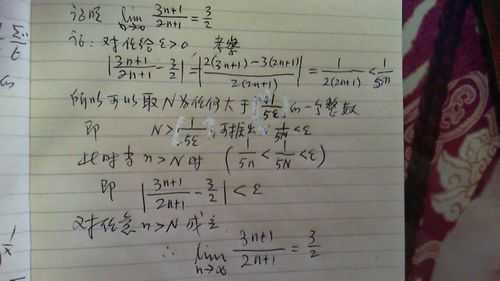 证明 lim n→∞ (3n+1)/(2n+1) = 3/2
证: 对任给 ε>0, 考察
|(3n+1)/(2n+1) - 3/2| = |(2(3n+1)-3(2n+1))/(2(2n+1))| = 1/(2(2n+1)) < 1/5n
所以可以取N为任何大于 1/5ε 的一个整数
即 N > 1/5ε, 可推出 1/5N < ε
此时当 n>N 时 (1/5n < 1/5N < ε)
即 |(3n+1)/(2n+1) - 3/2| < ε
对任意 n>N 成立
∴ lim n→∞ (3n+1)/(2n+1) = 3/2